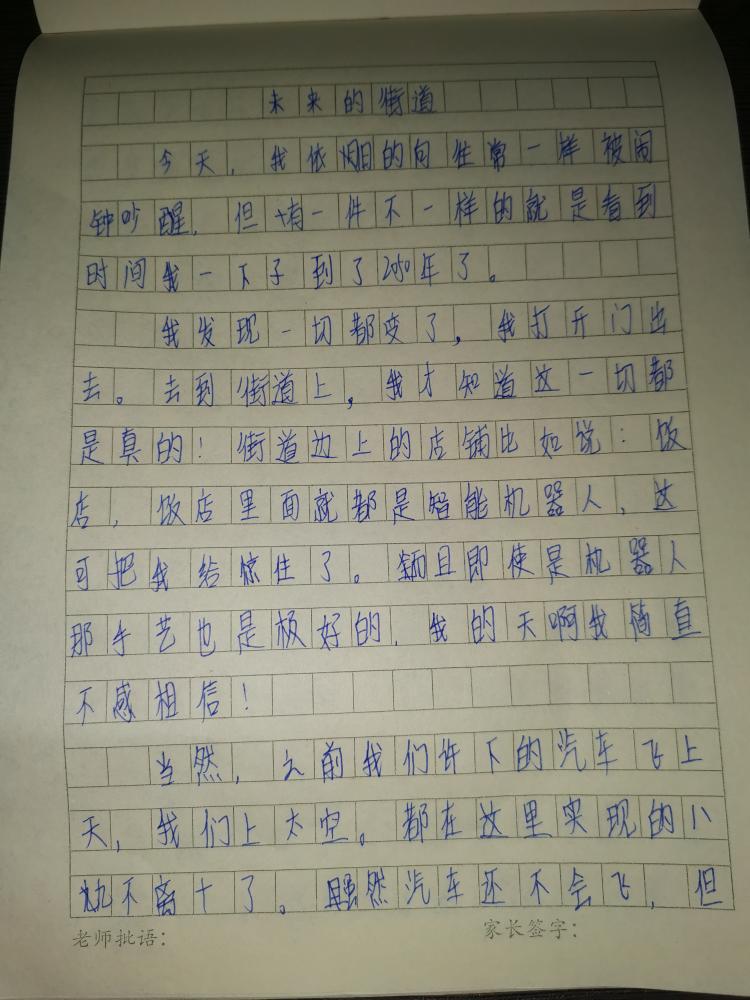 未来的街道
今天，我依旧的向往常一样被闹
钟吵醒，但有一件不一样的就是看到
时间我一下子到了2050年了。
我发现一切都变了，我打开门出
去。去到街道上，我才知道这一切都
是真的！街道边上的店铺比如说：饭
店，饭店里面就都是智能机器人，这
可把我给惊住了。而且即使是机器人
那手艺也是极好的，我的天啊我简直
不感相信！
当然，之前我们许下的汽车飞上
天，我们上太空。都在这里实现的八
九不离十了。虽然汽车还不会飞，但
老师批语：
家长签字：